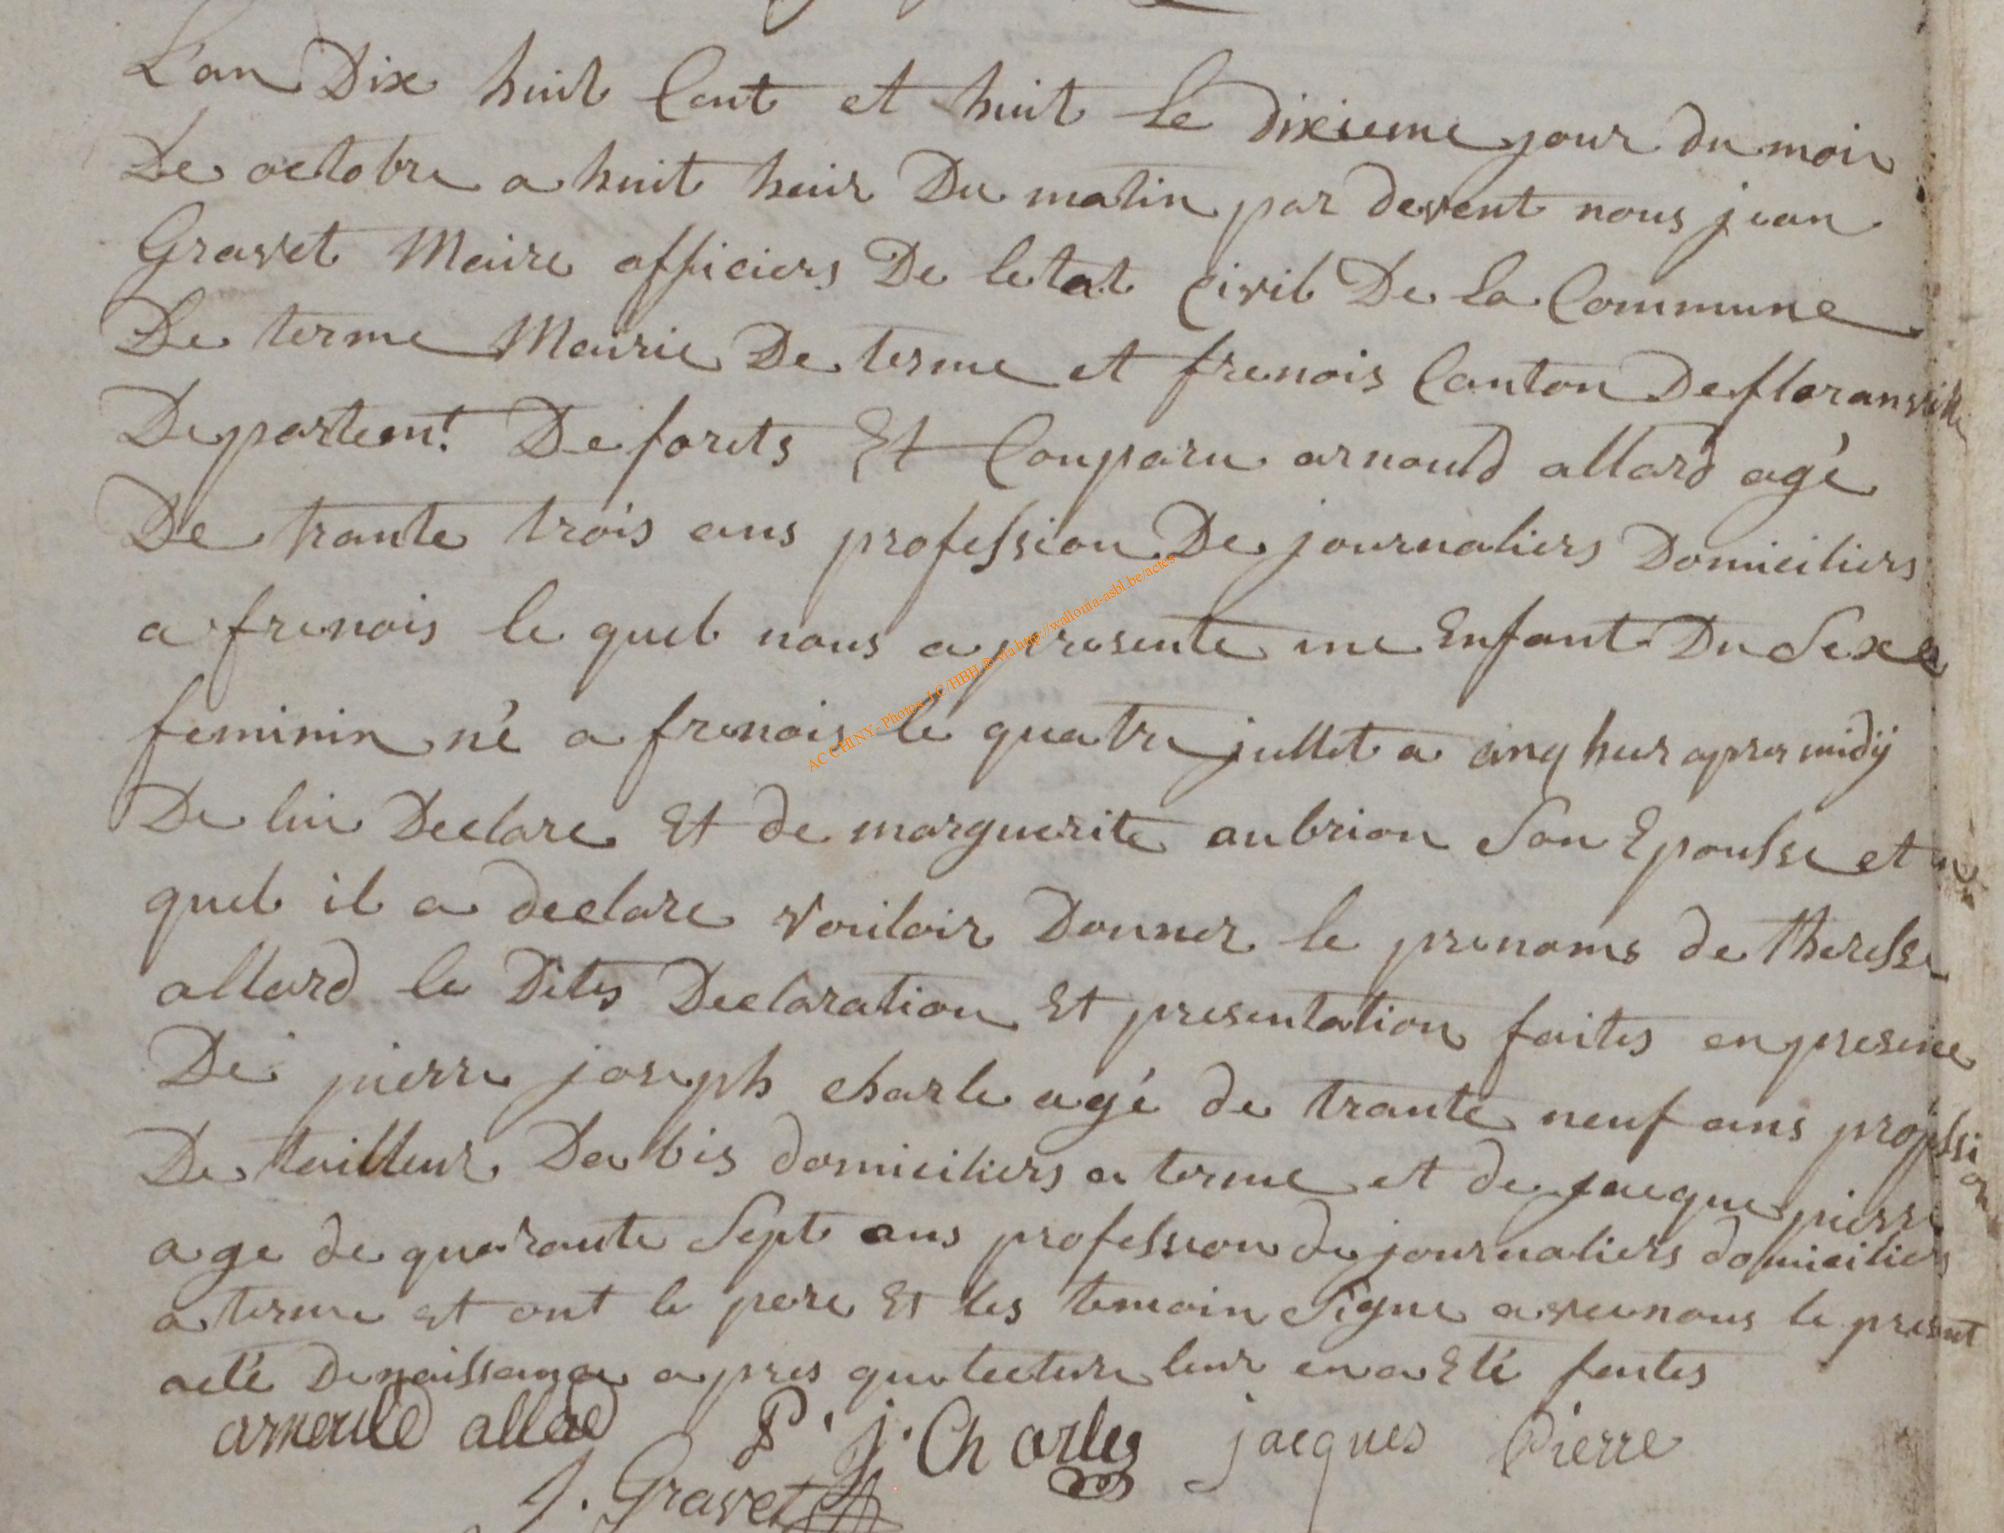 L'an Dix huit Cent et huit Le dixieme jour du mois
De octobre a huit heir Du matin par devent nous jean
Gravet Maire officiers De letat Civil De La Commune
De terme Mairie De terme et frenois Canton De floranville
Departemt. De forets Et Conparu arnould allard agé
De trante trois ans profession De journaliers Domiciliers
a frenois le quel nous a presente une Enfant Du Sexe
feminin né a frenois le quatre jullet a cinq heur apres midÿ
De lui Declare Et de marguerite aubrion Son Epousse et au
quel il a declare vouloir Donner le prenoms de theresse
allard le Dites Declaration Et presentation faites en presence
De pierre joseph charle agé de trante neuf ans profession
De tailleur Dabis domiciliers a terme et de jacque pierre
age de quarante Sept ans profession de journaliers domiciliers
a terme et ont le pere Et les temoin Signe avec nous le present
acte De naissance apres que lecture leur en a Eté faites
arnould allad P. j. Charles jacques Pierre
J. Gravet
AC CHINY - Photos J.C/HBH © via http://wallonia-asbl.be/actes